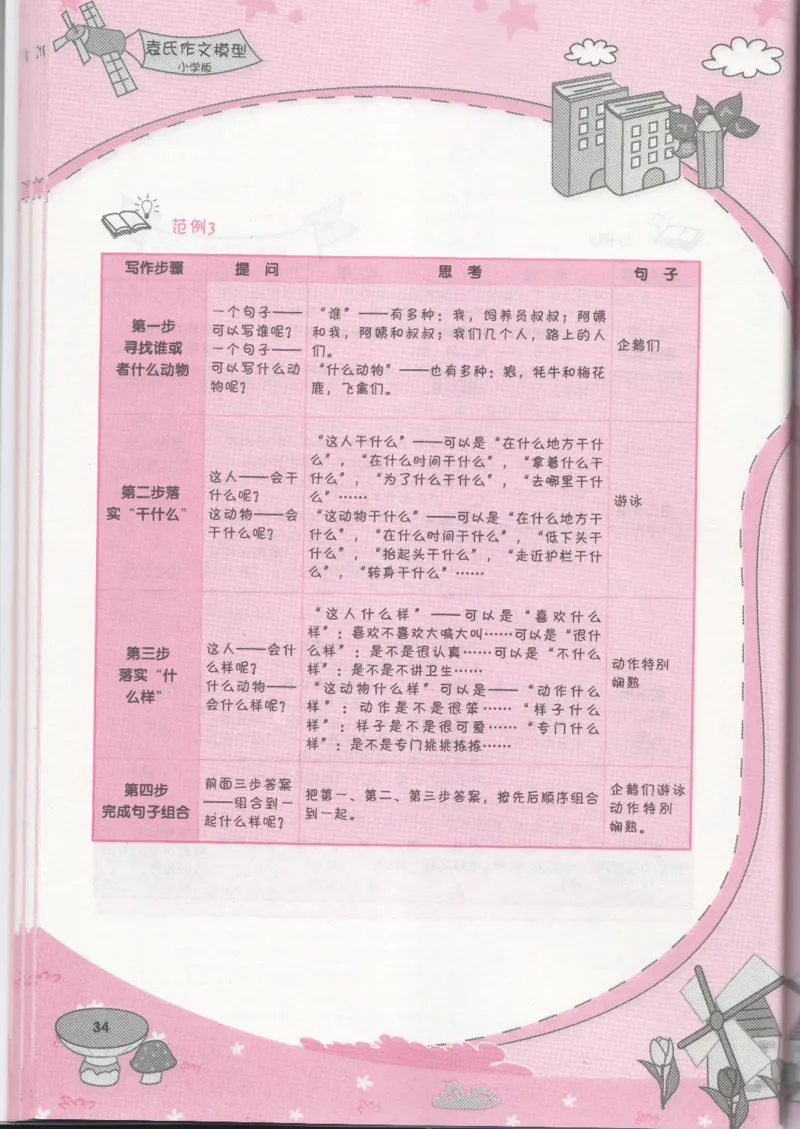 袁氏作文模型
小学版
范例3
写作步骤
提 问
思 考
句 子
第一步
寻找谁或
者什么动物
一个句子——
可以写谁呢？
一个句子——
可以写什么动
物呢？
“谁”——有多种：我，饲养员叔叔；阿姨
和我，阿姨和叔叔；我们几个人，路上的人
们。
“什么动物”——也有多种：狼，牦牛和梅花
鹿，飞禽们。
企鹅们
第二步落
实“干什么”
这人——会干
什么呢？
这动物——会
干什么呢？
“这人干什么”——可以是“在什么地方干什
么”，“在什么时间干什么”，“拿着什么干
什么”，“为了什么干什么”，“去哪里干什
么”……
“这动物干什么”——可以是“在什么地方干
什么”，“在什么时间干什么”，“低下头干
什么”，“抬起头干什么”，“走近护栏干什
么”，“转身干什么”……
游泳
第三步
落实“什
么样”
这人——会什
么样呢？
什么动物——
会什么样呢？
“这人什么样”——可以是“喜欢什么
样”：喜欢不喜欢大喊大叫……可以是“很什
么样”：是不是很认真……可以是“不什么
样”：是不是不讲卫生……
“这动物什么样”可以是——“动作什么
样”：动作是不是很笨……“样子什么
样”：样子是不是很可爱……“专门什么
样”：是不是专门挑挑拣拣……
动作特别
娴熟
第四步
完成句子组合
前面三步答案
——组合到一
起什么样呢？
把第一、第二、第三步答案，按先后顺序组合
到一起。
企鹅们游泳
动作特别
娴熟。
34